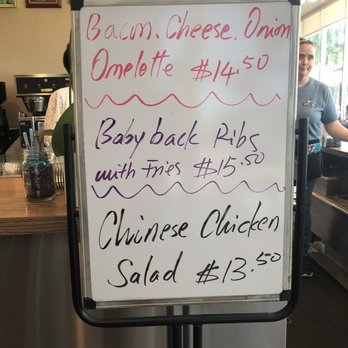 Bacon. Cheese. Onion
Omelette $14.50
Babyback Ribs
with Fries $15.50
Chinese Chicken
Salad $13.50